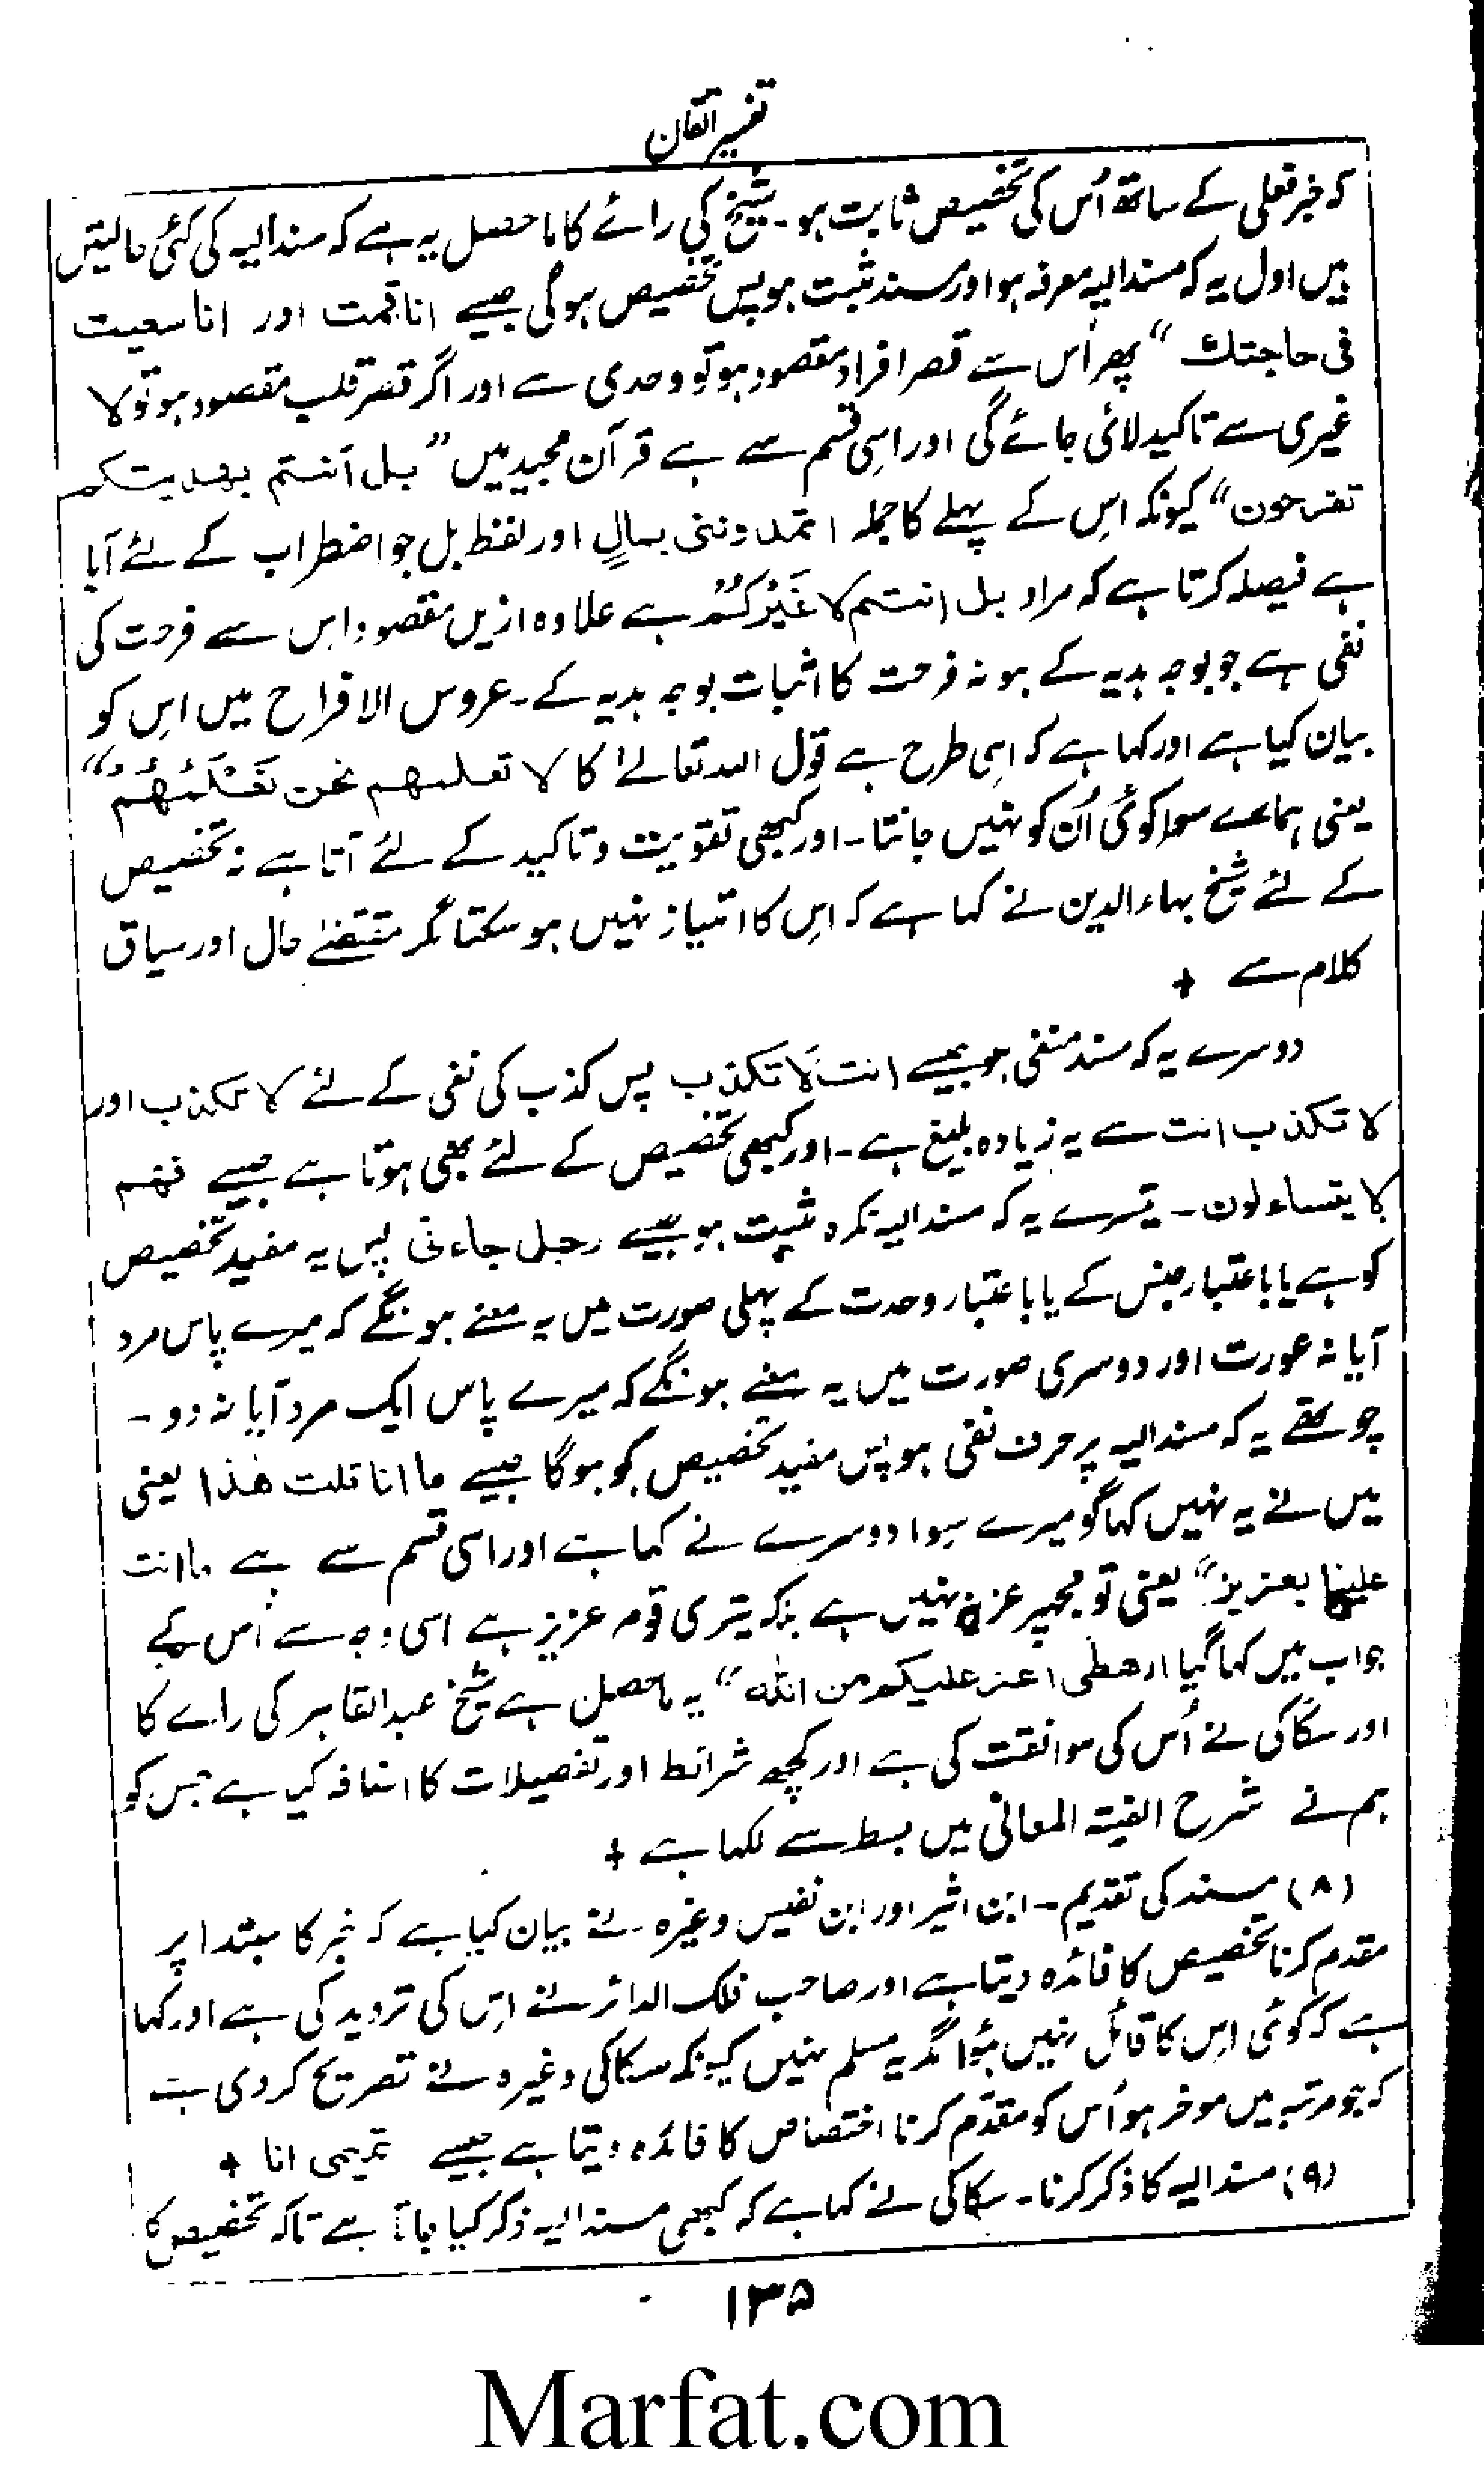 تفسیر اتقان
کہ خبر فعلی کے ساتھ اُس کی تخصیص ثابت ہو۔ شیخ کی رائے کا ماحصل یہ ہے کہ مسند الیہ کی کئی حالتیں
ہیں اول یہ کہ مسند الیہ معرفہ ہو اور مسند مثبت ہو پس تخصیص ہوگی جیسے انا قمت اور انا سعیت
فی حاجتك“ پھر اُس سے قصر افراد مقصود ہو تو وحدی سے اور اگر قصر قلب مقصود ہو تو لا
غیری سے تاکید لائی جائے گی اور اسی قسم سے ہے قرآن مجید میں ”بل انتم بھدیتکم
تفرحون“ کیونکہ اِس کے پہلے کا جملہ اتمدوننی بمالٍ اور لفظ بل جو اضطراب کے لئے آیا
ہے فیصلہ کرتا ہے کہ مراد بل انتم لا غَیْرُکُمْ ہے علاوہ ازیں مقصود اِس سے فرحت کی
نفی ہے جو بوجہ ہدیہ کے ہو نہ فرحت کا اثبات بوجہ ہدیہ کے۔ عروس الافراح میں اِس کو
بیان کیا ہے اور کہا ہے کہ اسی طرح ہے قول اللہ تعالےٰ کا لا تعلمھم نحن نَعْلَمُھُمْ“
یعنی ہمارے سوا کوئی اُن کو نہیں جانتا۔ اور کبھی تقویت و تاکید کے لئے آتا ہے نہ تخصیص
کے لئے شیخ بہاء الدین نے کہا ہے کہ اِس کا امتیاز نہیں ہو سکتا مگر مقتضےٰ حال اور سیاق
کلام سے +
دوسرے یہ کہ مسند منفی ہو جیسے انت لَا تکذب پس کذب کی نفی کے لئے لا تکذب اور
لا تکذب انت سے یہ زیادہ بلیغ ہے۔ اور کبھی تخصیص کے لئے بھی ہوتا ہے جیسے فھم
لا یتساءلون۔ تیسرے یہ کہ مسند الیہ نکرہ مثبت ہو جیسے رجل جاءنی پس یہ مفید تخصیص
کو ہے یا باعتبار جنس کے یا باعتبار وحدت کے پہلی صورت میں یہ معنے ہونگے کہ میرے پاس مرد
آیا نہ عورت اور دوسری صورت میں یہ معنے ہونگے کہ میرے پاس ایک مرد آیا نہ دو۔
چوتھے یہ کہ مسند الیہ پر حرف نفی ہو پس مفید تخصیص کو ہوگا جیسے ما انا قلت ھٰذا یعنی
میں نے یہ نہیں کہا گو میرے سوا دوسرے نے کہا ہے اور اسی قسم سے ہے ما انت
علینا بعزیز“ یعنی تو مجھپر عزیز نہیں ہے بلکہ تیری قوم عزیز ہے اسی وجہ سے اُس کے
جواب میں کہا گیا ارھطی اعز علیکم من اللہ“ یہ ماحصل ہے شیخ عبدالقاہر کی رائے کا
اور سکاکی نے اُس کی موافقت کی ہے اور کچھ شرائط اور تفصیلات کا اضافہ کیا ہے جس کو
ہم نے شرح الفیتہ المعانی میں بسط سے لکھا ہے +
(۸) مسند کی تقدیم۔ ابن اثیر اور ابن نفیس وغیرہ نے بیان کیا ہے کہ خبر کا مبتدا پر
مقدم کرنا تخصیص کا فائدہ دیتا ہے اور صاحب فلک الدائر نے اِس کی تردید کی ہے اور کہا
ہے کہ کوئی اِس کا قائل نہیں ہُوا مگر یہ مسلم نہیں کیونکہ سکاکی وغیرہ نے تصریح کر دی ہے
کہ جو مرتبہ میں موخر ہو اُس کو مقدّم کرنا اختصاص کا فائدہ دیتا ہے جیسے تمیمی انا +
(۹) مسند الیہ کا ذکر کرنا۔ سکاکی نے کہا ہے کہ کبھی مسند الیہ ذکر کیا جاتا ہے تاکہ تخصیص کا
۱۳۵
Marfat.com